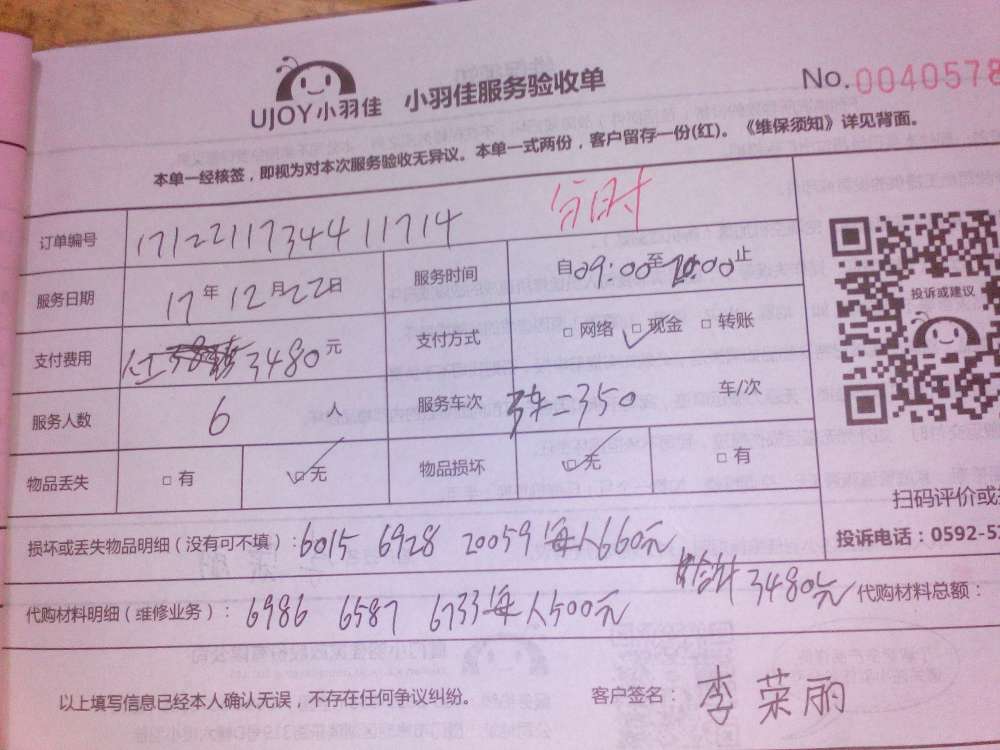 UJOY小羽佳 小羽佳服务验收单 No.0040578
本单一经核签，即视为对本次服务验收无异议。本单一式两份，客户留存一份(红)。《维保须知》详见背面。
订单编号 171221173441 1714 分时
服务日期 17年12月22日 服务时间 自09:00至20:00止
支付费用 3480元 支付方式 □网络 □现金 □转账
服务人数 6人 服务车次 350 车/次
物品丢失 □有 □无 物品损坏 □无 □有
投诉或建议
扫码评价或
损坏或丢失物品明细（没有可不填）：6015 6928 20059每人660元
投诉电话：0592-5
代购材料明细（维修业务）：6986 6587 6733每人500元 合计3480元 代购材料总额：
以上填写信息已经本人确认无误，不存在任何争议纠纷。 客户签名：李荣丽